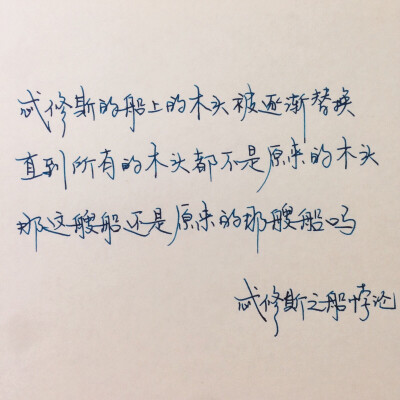 忒修斯的船上的木头被逐渐替换
直到所有的木头都不是原来的木头
那这艘船还是原来的那艘船吗
忒修斯之船悖论